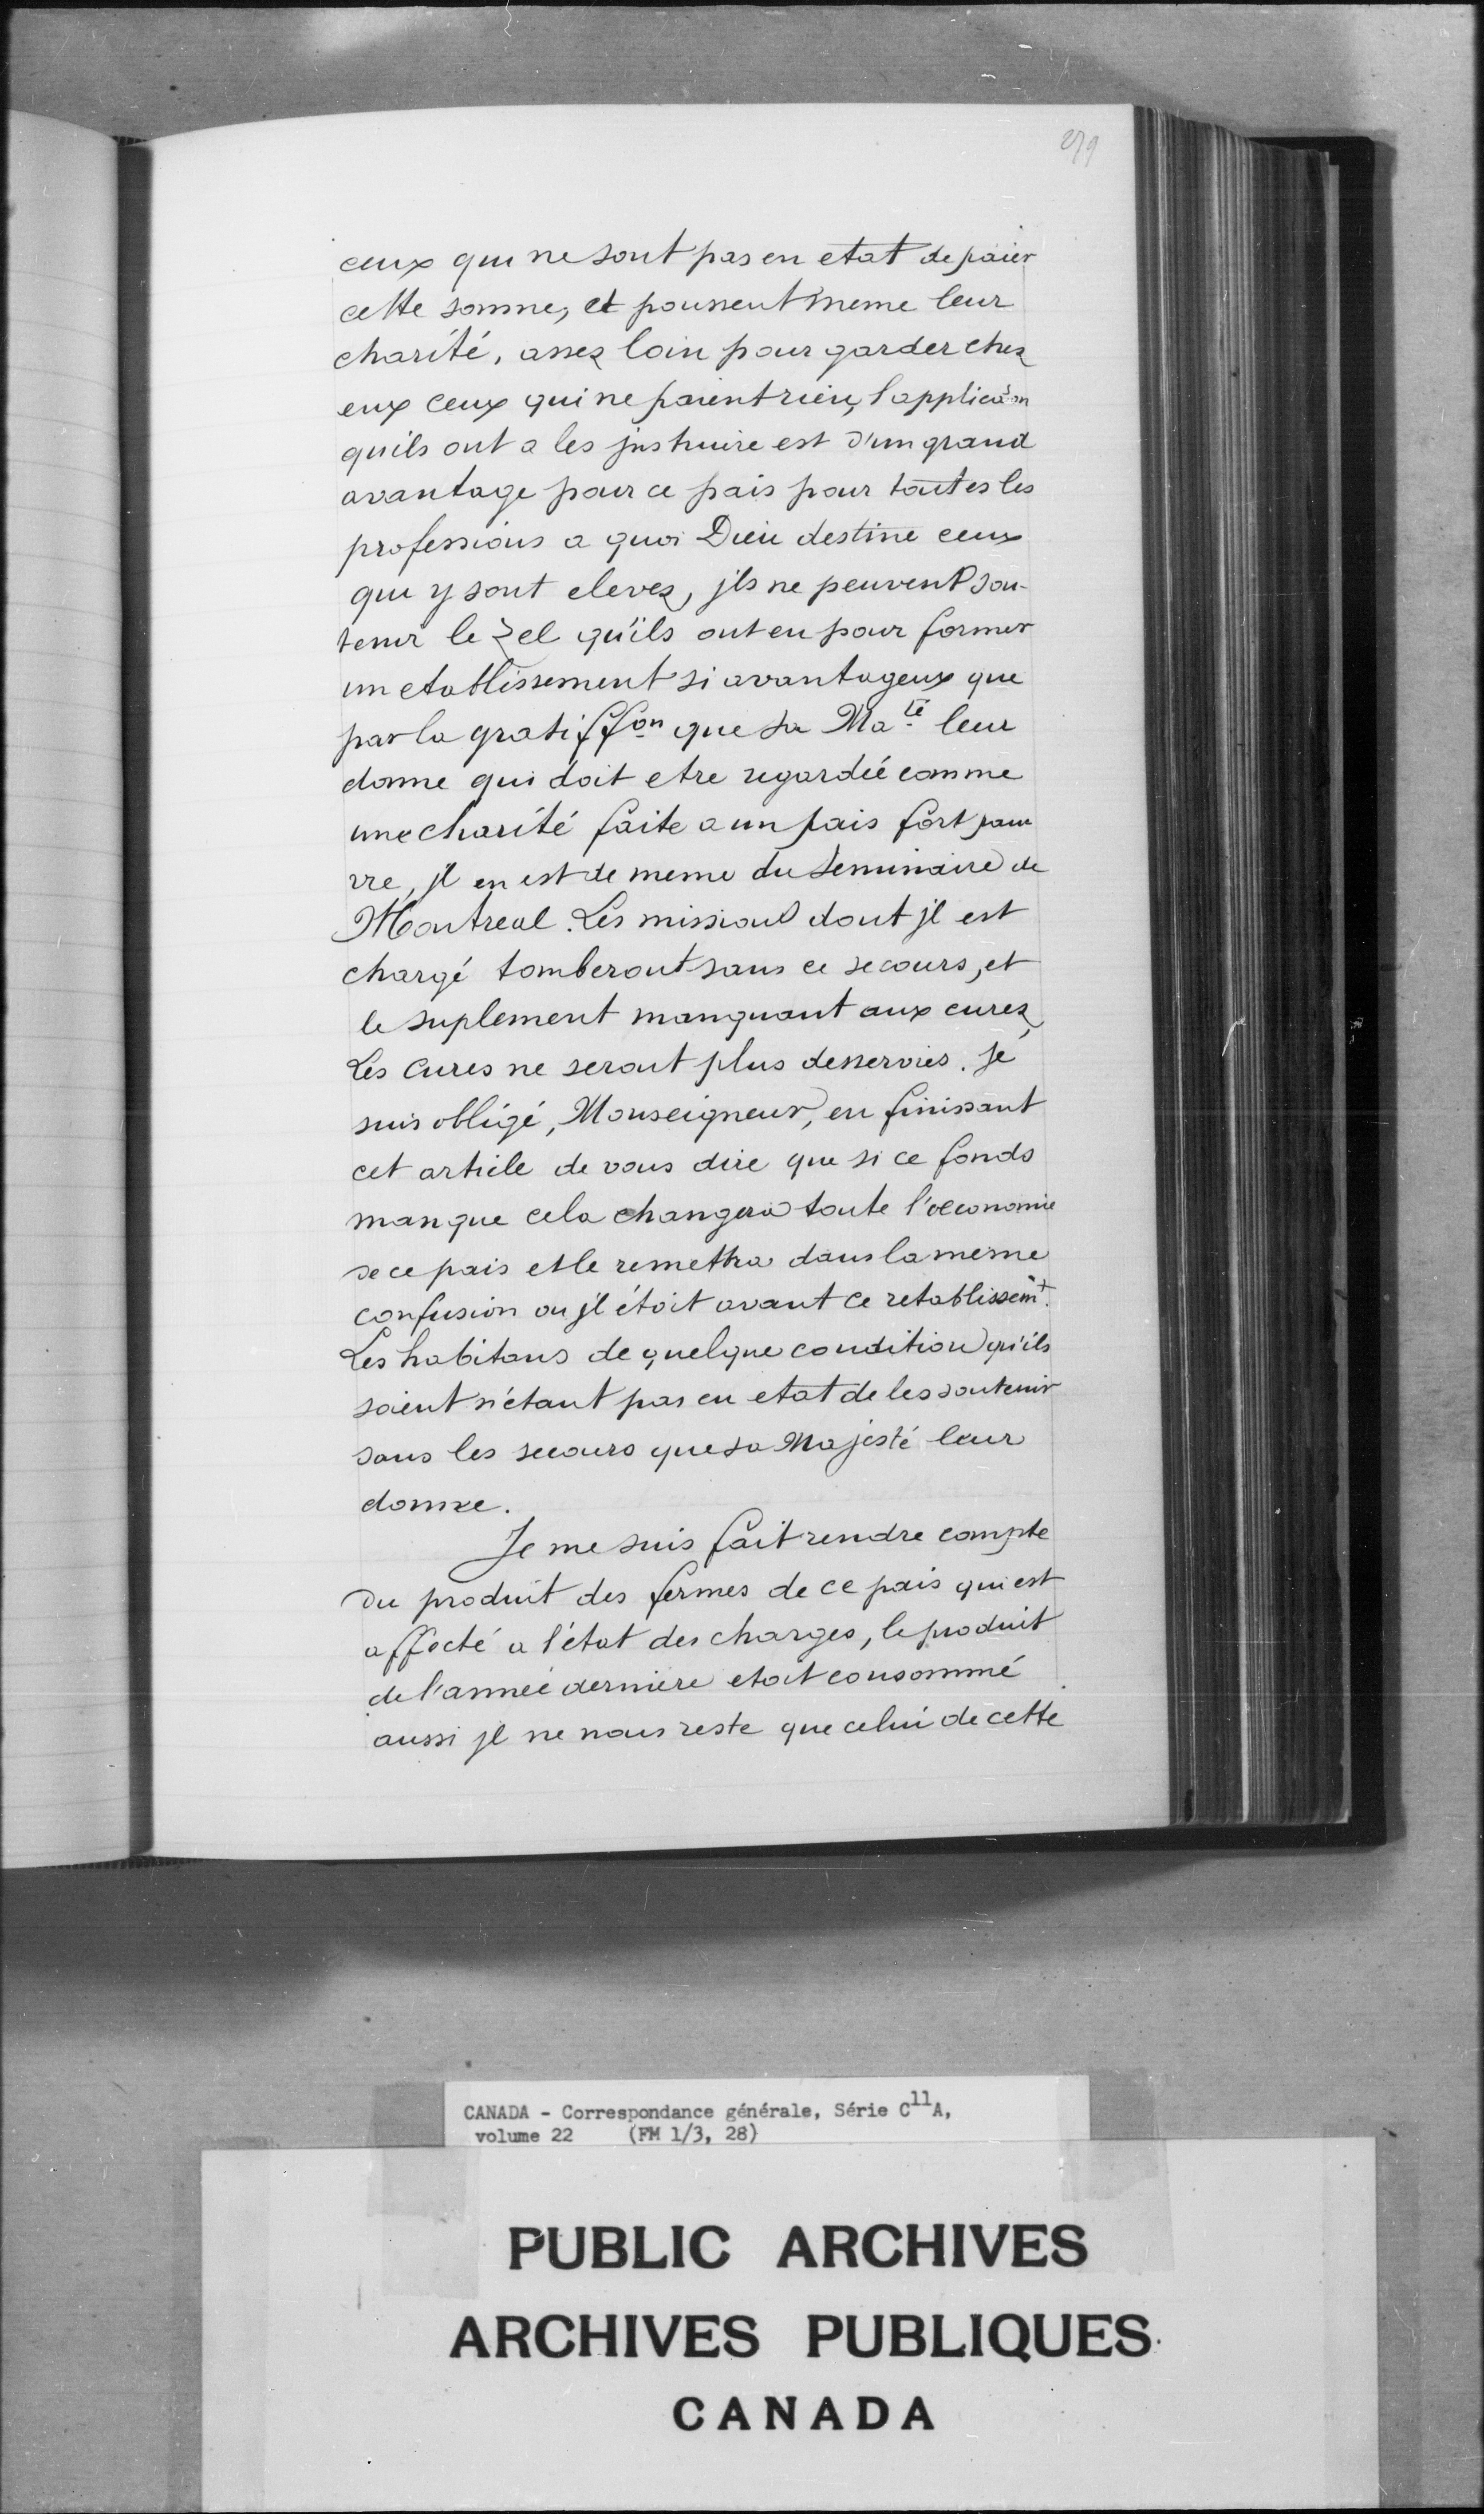 279
ceux qui ne sont pas en etat de paier
cette somme, et poussent meme leur
charité, assez loin pour garder chez
eux ceux qui ne paient rien, l'applicaõn
qu'ils ont a les jnstruire est d'un grand
avantage pour ce pais pour toutes les
professions a quoi Dieu destine ceux
qui y sont elevez, jls ne peuvent sou-
tenir le Zel qu'ils ont eu pour former
un etablissement si avantageux que
par la gratiffon que sa Maté leur
donne qui doit etre regardée comme
une charité faite a un pais fort pau
vre, jl en est de meme du Seminaire de
Montreal. Les missions dont jl est
chargé tomberont sans ce secours, et
le suplement manquant aux curez,
Les Cures ne seront plus desservies. Je
suis obligé, Monseigneur, en finissant
cet article de vous dire que si ce fonds
manque cela changera toute l'œconomie
de ce pais et le remettra dans la meme
confusion ou jl étoit avant ce retablissemt.
Les habitans de quelque condition qu'ils
soient n'étant pas en etat de les soutenir
sans les secours que sa Majesté leur
donne.
Je me suis fait rendre compte
du produit des fermes de ce pais qui est
affecté a l'état des charges, le produit
de l'année derniere etoit consommé
aussi jl ne nous reste que celui de cette
CANADA - Correspondance générale, Série C11A,
volume 22 (FM 1/3, 28)
PUBLIC ARCHIVES
ARCHIVES PUBLIQUES
CANADA